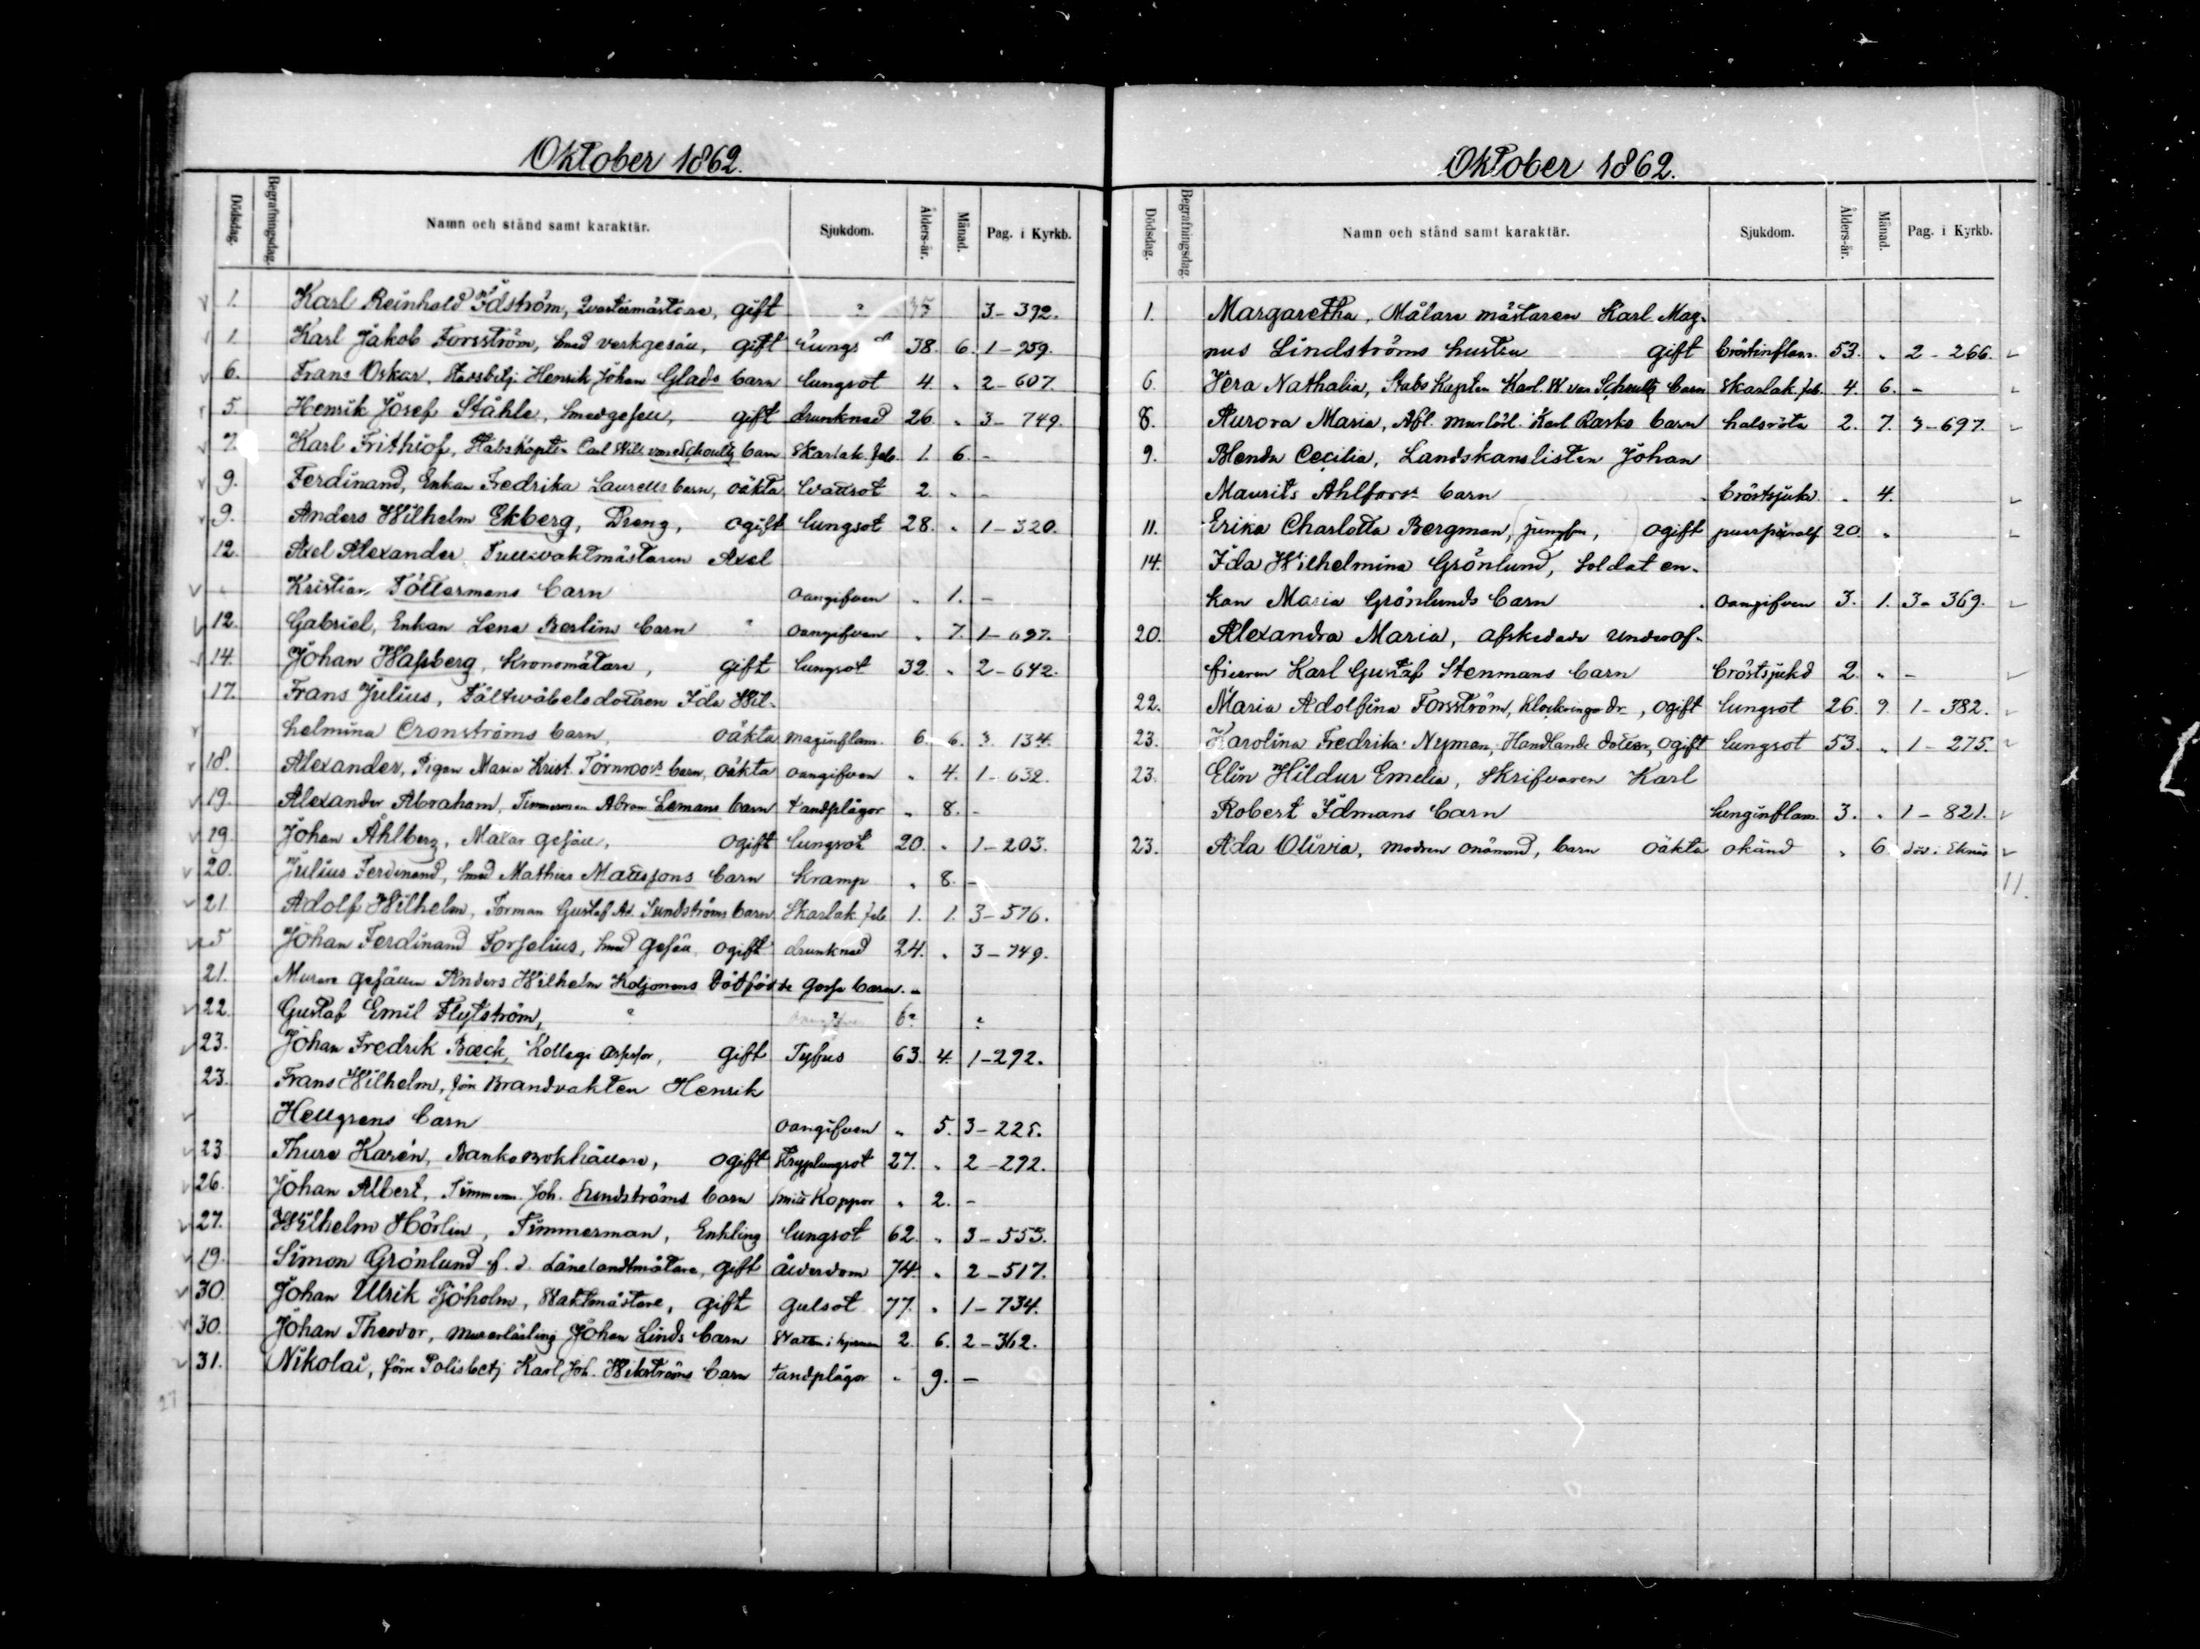 Oktober 1862.
Dödsdag. Begrafningsdag. Namn och stånd samt karaktär. Sjukdom. Ålders-år. Månad. Pag. i Kyrkb.
1. Karl Reinhold Idström, Qvartermästare, gift 3-392.
1. Karl Jakob Forsström, Smed verkgesäll, gift 38. 6. 1-259.
6. Frans Oskar, Henrik Johan Glads barn lungsot 4. „ 2-607
5. Henrik Josef Ståhle, Smedgesell, gift drunknad 26. „ 3-749.
7. Karl Frithiof, Stabskapten Carl Wilh. von Schoultz barn Skarlak. feb. 1. 6. -
9. Ferdinand, Enkan Fredrika Laurells barn, oäkta 2. „ -
9. Anders Wilhelm Ekberg, Dreng, ogift lungsot 28. „ 1-320.
12. Axel Alexander Tullvaktmästaren Axel
Kristian Töttermans barn oangifven „ 1. -
12. Gabriel, Enkan Lena Berlins barn oangifven „ 7. 1-697.
14. Johan Wasberg, Kronomätare, gift lungsot 32. „ 2-642.
17. Frans Julius, Fältwäbelsdottren Ida Wil-
helmina Cronströms barn, oäkta maginflam. 6. 6. 3. 134.
18. Alexander, Pigan Maria Krist. Törnroos barn, oäkta oangifven „ 4. 1-632.
19. Alexander Abraham, Timmerman Abram Lemans barn tandplågor „ 8. -
19. Johan Åhlberg, Målar gesäll, ogift lungsot 20. „ 1-203.
20. Julius Ferdinand, Smed Mathias Matssons barn Kramp „ 8. -
21. Adolf Wilhelm, Forman Gustaf Ad. Sundströms barn Skarlak. feb. 1. 1. 3-576.
5 Johan Ferdinand Forselius, Smed gesäll ogift drunknad 24. „ 3-749.
21. Murare gesällen Anders Wilhelm Koljonens dödfödde gosse barn. „
22. Gustaf Emil Flytström, ? 6? ?
23. Johan Fredrik Boeck, Kollegi Assessor, gift Tyfus 63. 4. 1-292.
23. Frans Wilhelm, förre Brandvakten Henrik
Hellgrens barn oangifven „ 5. 3-225.
23 Thure Karén, Banko Bokhållare, ogift Stryplungsot 27. „ 2-292.
26. Johan Albert, Timmerm. Joh. Sundströms barn Smitt Koppor „ 2. -
27. Wilhelm Hörlin, Timmerman, Enkling lungsot 62. „ 3-553.
19. Simon Grönlund f. d. Länelandtmätare, gift ålderdom 74. „ 2-517.
30 Johan Ulrik Sjöholm, Waktmästare, gift gulsot 77. „ 1-734.
30. Johan Theodor, Murarlärling Johan Linds barn Watten i hjernan 2. 6. 2-362.
31. Nikolai, förre Polisbetj Karl Joh. Wikströms barn tandplågor „ 9. -
27
Oktober 1862.
Dödsdag. Begrafningsdag. Namn och stånd samt karaktär. Sjukdom. Ålders-år. Månad. Pag. i Kyrkb.
1. Margaretha, Målare mästaren Karl Mag-
nus Lindströms hustru gift bröstinflam. 53. „ 2-266.
6. Vera Nathalia, Stabs Kapten Karl W. von Schoultz barn Skarlak. feb. 4. 6. -
8. Aurora Maria, Afl. Murlärl. Karl Rasks barn halsröta 2. 7. 3-697.
9. Blenda Cecilia, Landskanslisten Johan
Maurits Ahlfors barn bröstsjukd. „ 4.
11. Erika Charlotta Bergman, jungfru, ogift 20. „
14. Ida Wilhelmina Grönlund, Soldat en-
kan Maria Grönlunds barn oangifven 3. 1. 3-369.
20. Alexandra Maria, afskedade Underof-
ficeren Karl Gustaf Stenmans barn bröstsjukd 2. „ -
22. Maria Adolfina Forsström, Klockringare dr., ogift lungsot 26. 9. 1-382.
23. Karolina Fredrika Nyman, Handlande dotter, ogift lungsot 53. „ 1-275.
23. Elin Hildur Emelia, Skrifvaren Karl
Robert Idmans barn lunginflam. 3. „ 1-821.
23. Ada Olivia, modren onämnd, barn oäkta okänd „ 6. döv. i Eknäs
11.